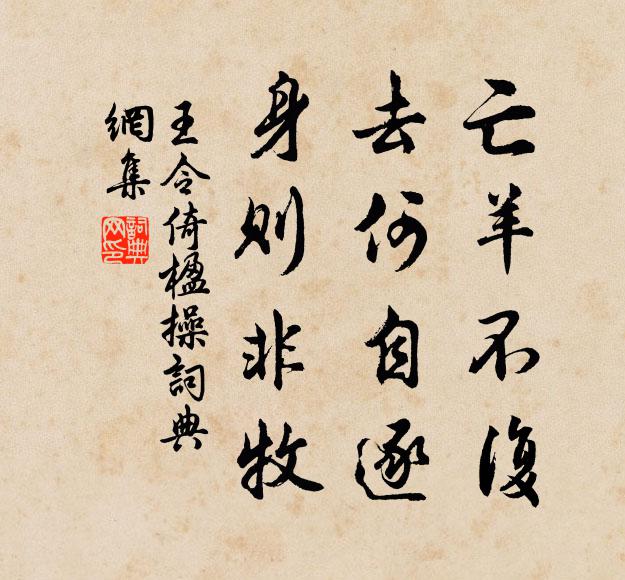 亡羊不復
去何自逐
身則非牧
王令倚楹操詞典
網集
詞典网印